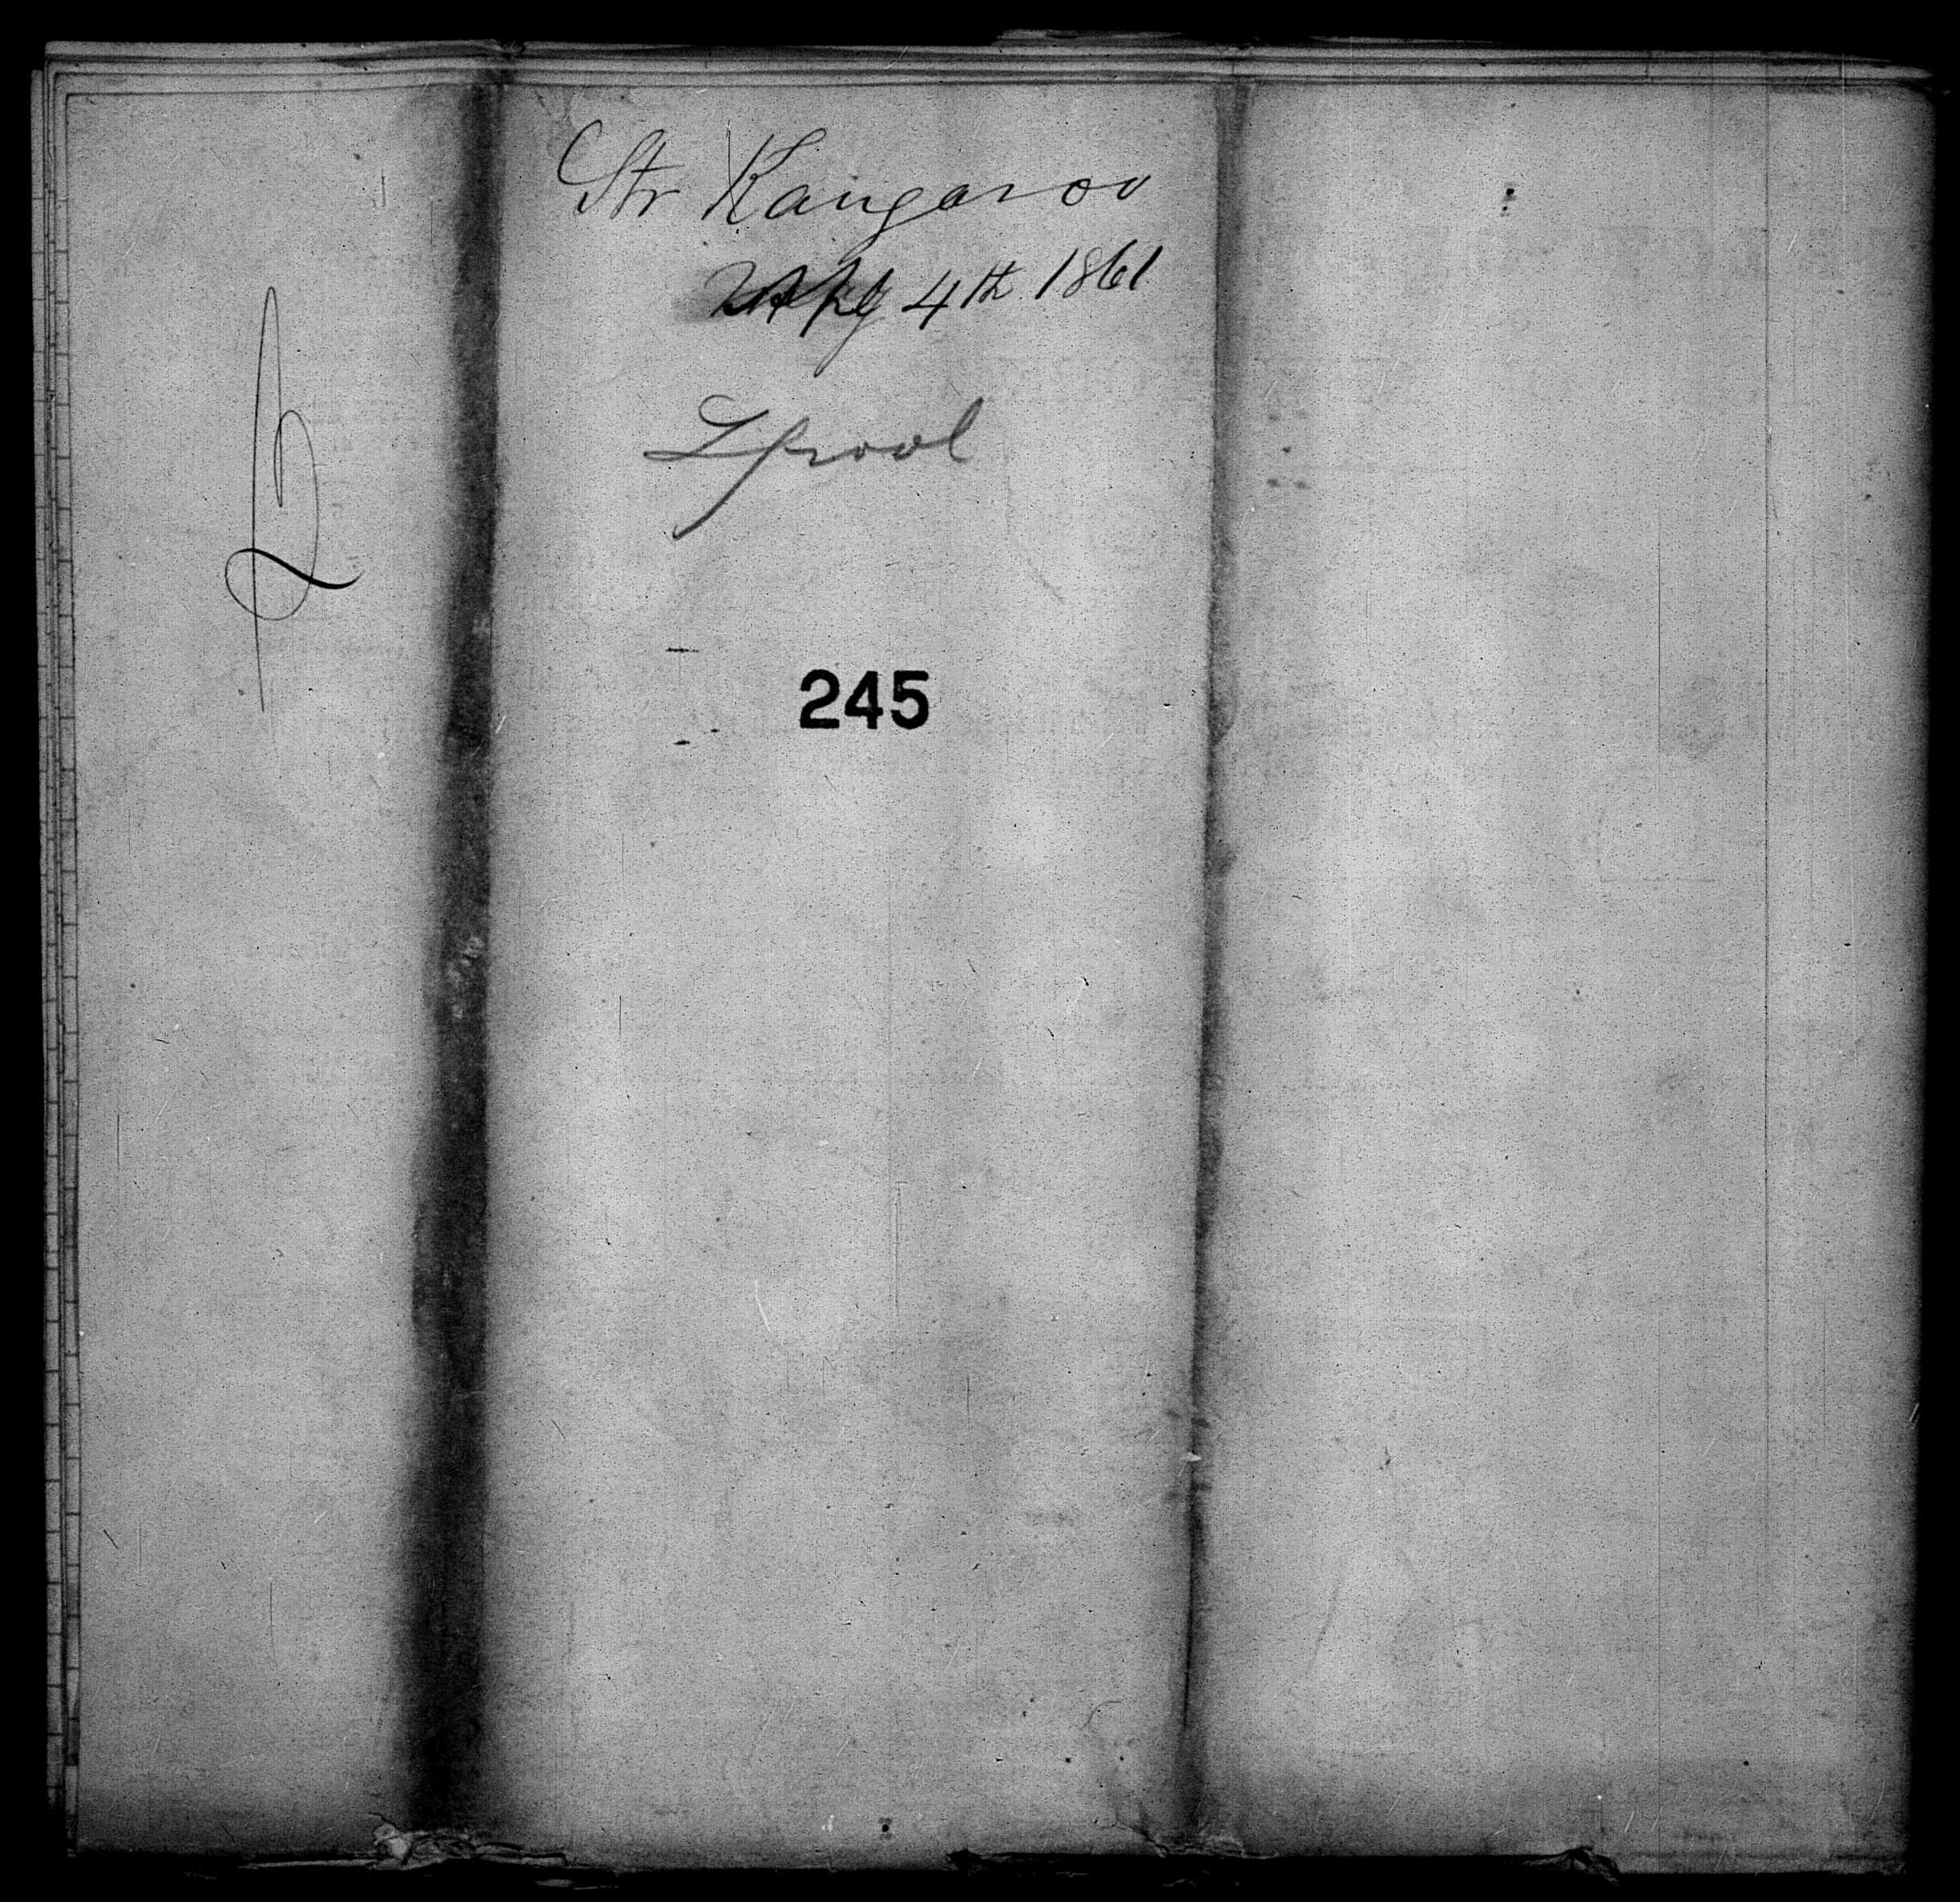 Str Kangaroo
4th 1861
Lpool
245